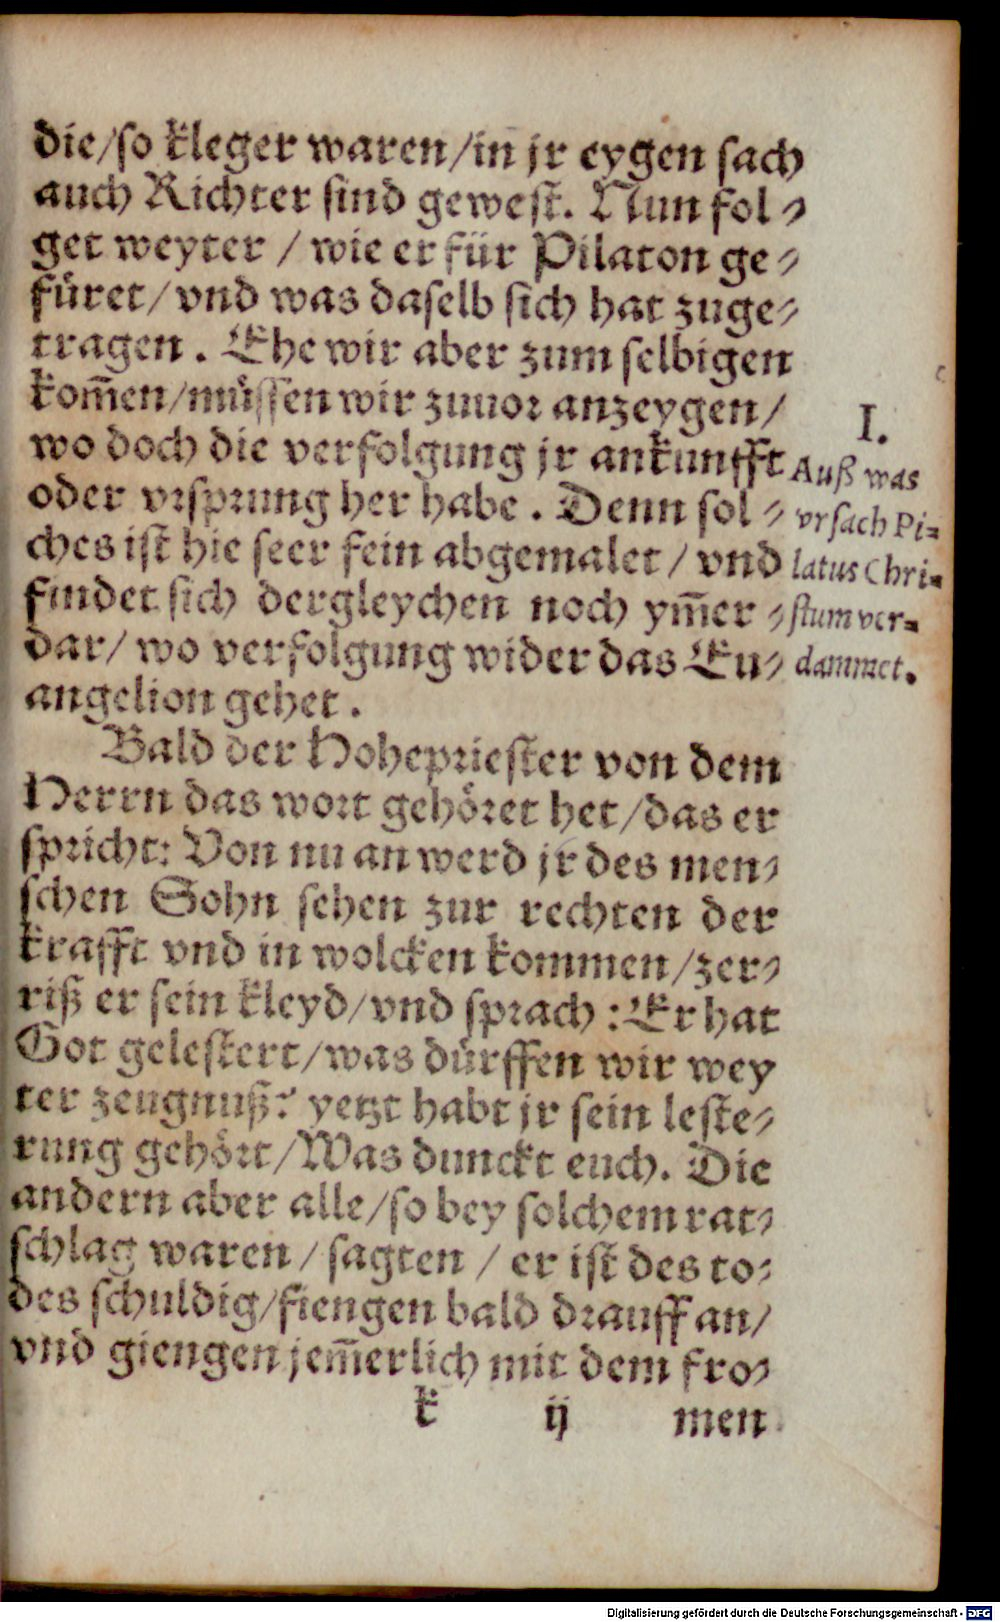 die/so kleger waren/in jr eygen sach
auch Richter sind gewest. Nun fol⸗
get weyter / wie er für Pilaton ge⸗
füret/ vnd was daselb sich hat zuge⸗
tragen. Ehe wir aber zum selbigen
kom̃en/müssen wir zuuor anzeygen/
wo doch die verfolgung jr ankunfft
oder vrsprung her habe. Denn sol⸗
ches ist hie seer fein abgemalet / vnd
findet sich dergleychen noch ym̃er⸗
dar/ wo verfolgung wider das Eu⸗
angelion gehet.
I.
Auß was
vrsach Pi⸗
latus Chri⸗
stum ver⸗
dammet.
Bald der Hohepriester von dem
Herrn das wort gehöret het/das er
spricht: Von nu an werd jr des men⸗
schen Sohn sehen zur rechten der
krafft vnd in wolcken kommen/zer⸗
riß er sein kleyd/vnd sprach: Er hat
Got gelestert/was dürffen wir wey
ter zeugnuß? yetzt habt jr sein leste⸗
rung gehört/Was dunckt euch. Die
andern aber alle/so bey solchem rat⸗
schlag waren / sagten / er ist des to⸗
des schuldig/fiengen bald drauff an/
vnd giengen jem̃erlich mit dem fro⸗
k ij men
Digitalisierung gefördert durch die Deutsche Forschungsgemeinschaft - DFG